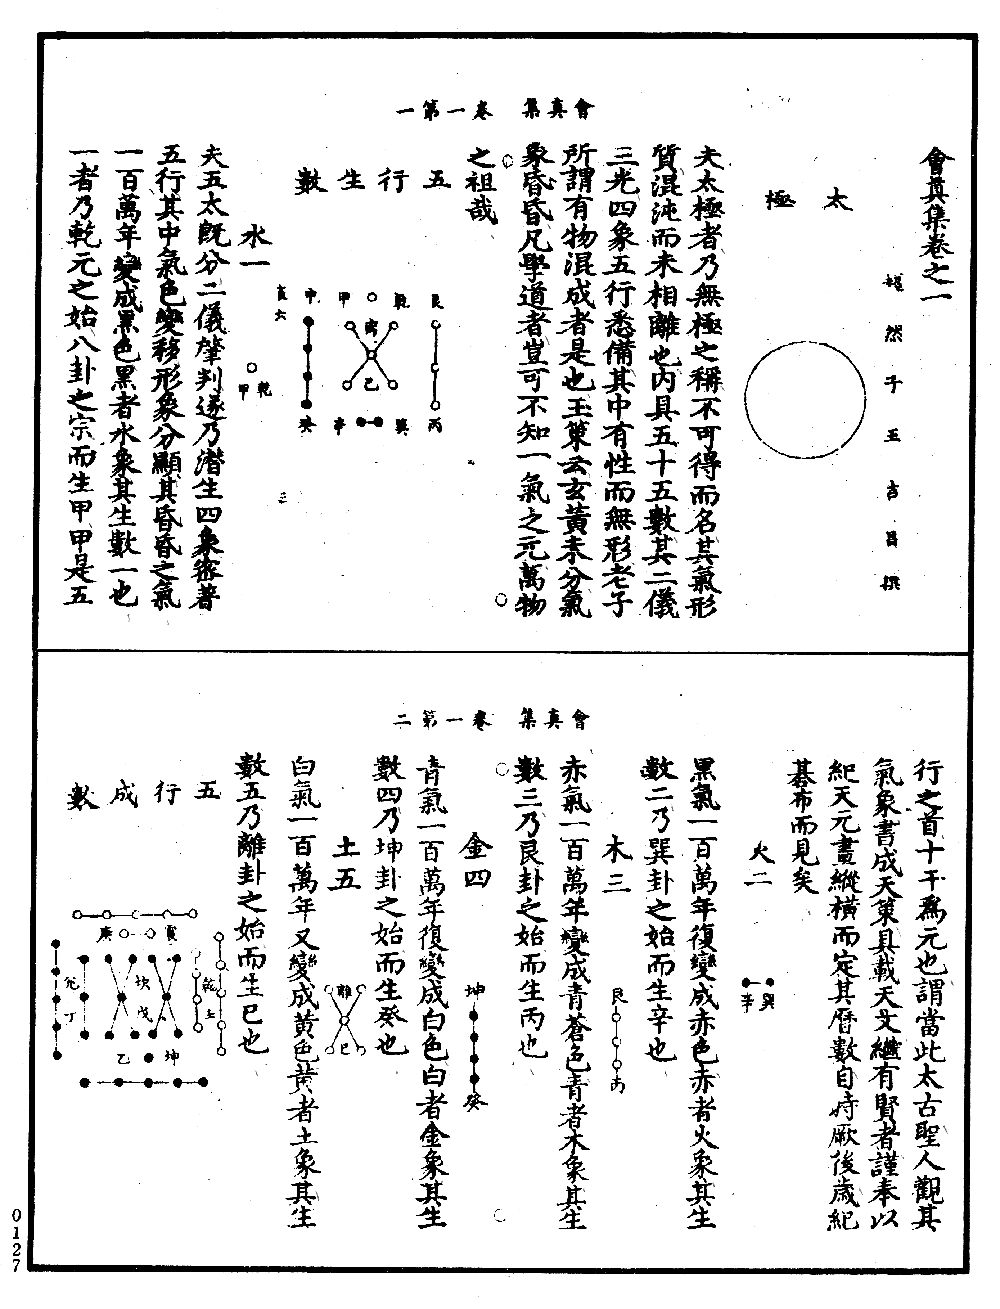 會真集 卷一第一
會真集卷之一
超然子王吉昌撰
太極
夫太極者乃無極之稱不可得而名其氣形
質混沌而未相離也內具五十五數其二儀
三光四象五行悉備其中有性而無形老子
所謂有物混成者是也玉策云玄黃未分氣
象昏昏凡學道者豈可不知一氣之元萬物
之祖哉
五行生數
艮
丙
乾
離
己
甲
巽
辛
申
癸
寅六
三
水一
乾
甲
夫五太既分二儀肇判遂乃潛生四象密著
五行其中氣色變移形象分顯其昏昏之氣
一百萬年變成黑色黑者水象其生數一也
一者乃乾元之始八卦之宗而生甲甲是五
會真集 卷一第二
行之首十干為元也謂當此太古聖人觀其
氣象書成天策具載天文繼有賢者謹奉以
紀天元畫縱橫而定其曆數自時厥後歲紀
碁布而見矣
火二
巽
辛
黑氣一百萬年復變成赤色赤者火象其生
數二乃巽卦之始而生辛也
木三
艮
丙
赤氣一百萬年變成青蒼色青者木象其生
數三乃艮卦之始而生丙也
金四
坤
癸
青氣一百萬年復變成白色白者金象其生
數四乃坤卦之始而生癸也
土五
離
己
白氣一百萬年又變成黃色黃者土象其生
數五乃離卦之始而生巳也
五行成數
庚
寅
乾
坎
戊
丁
乙
坤
0127